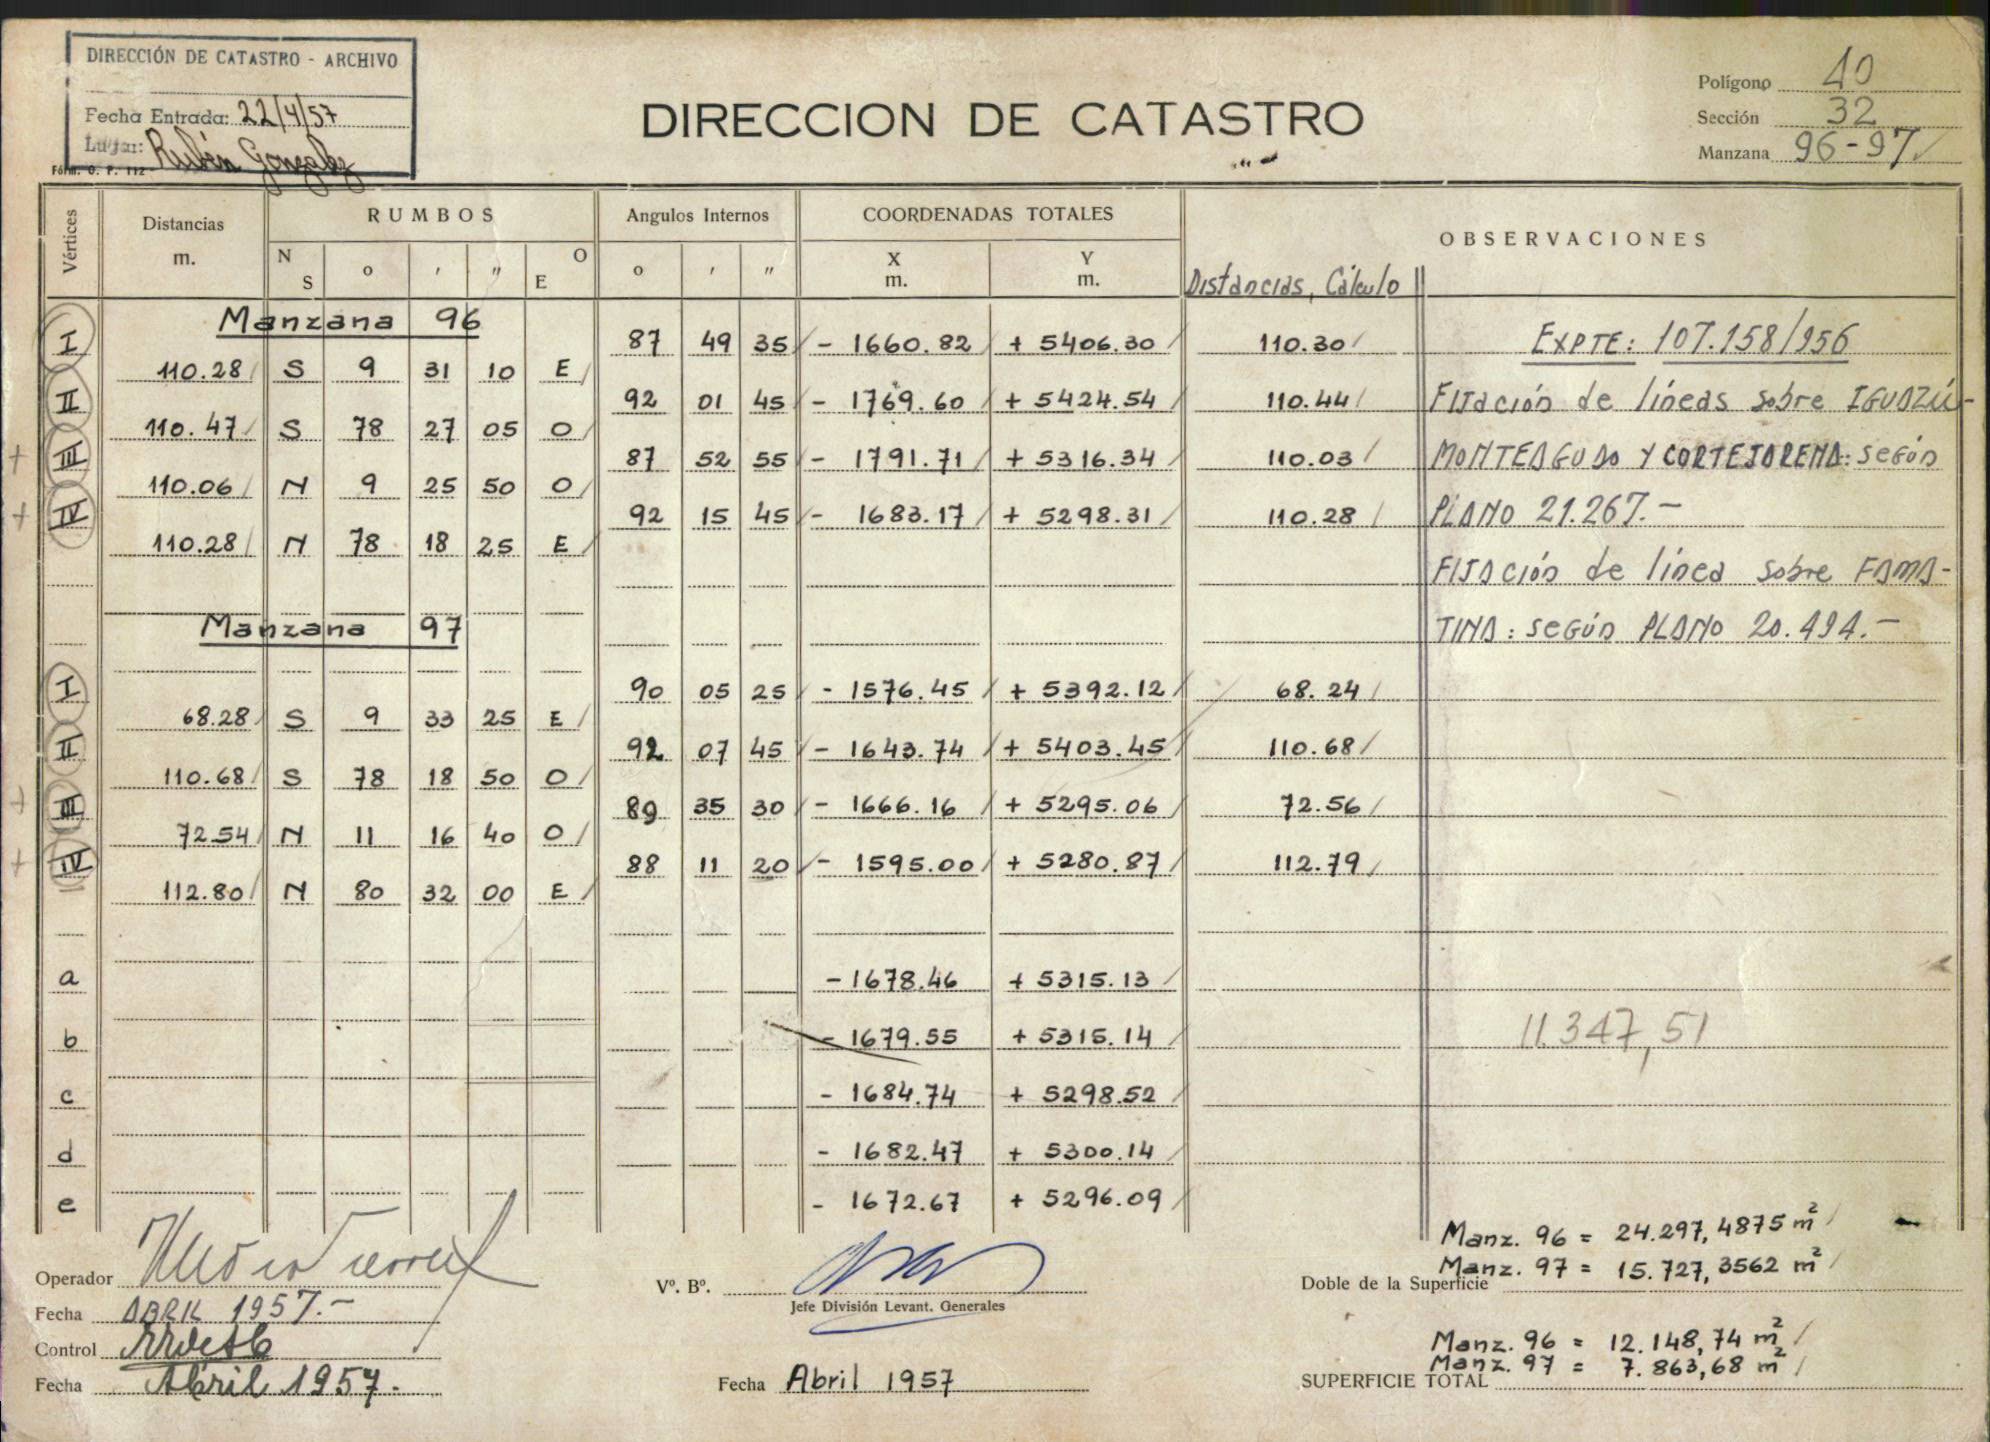 DIRECCIÓN DE CATASTRO - ARCHIVO
Fecha Entrada: 22/4/57
Lugar: Rubén Gonzalez
Fórm. O. P. 112
DIRECCION DE CATASTRO
Polígono 40
Sección 32
Manzana 96-97
Vértices Distancias m. RUMBOS N S o ' " O E Angulos Internos o ' " COORDENADAS TOTALES X m. Y m. Distancias, Cálculo OBSERVACIONES
Manzana 96
I 87 49 35 - 1660.82 + 5406.30 110.30 EXPTE: 107.158/956
110.28 S 9 31 10 E
II 92 01 45 - 1769.60 + 5424.54 110.44 FIJación de líneas sobre IGUAZÚ-
110.47 S 78 27 05 O
III 87 52 55 - 1791.71 + 5316.34 110.03 MONTEAGUDO Y CORTEJARENA: según
110.06 N 9 25 50 O
IV 92 15 45 - 1683.17 + 5298.31 110.28 PLANO 21.267.-
110.28 N 78 18 25 E
FIJACIÓN de línea sobre FAMA-
Manzana 97
TINA: según PLANO 20.494.-
I 90 05 25 - 1576.45 + 5392.12 68.24
68.28 S 9 33 25 E
II 92 07 45 - 1643.74 + 5403.45 110.68
110.68 S 78 18 50 O
III 89 35 30 - 1666.16 + 5295.06 72.56
72.54 N 11 16 40 O
IV 88 11 20 - 1595.00 + 5280.87 112.79
112.80 N 80 32 00 E
a - 1678.46 + 5315.13
b - 1679.55 + 5315.14 11.347,51
c - 1684.74 + 5298.52
d - 1682.47 + 5300.14
e - 1672.67 + 5296.09
Manz. 96 = 24.297,4875 m²
Manz. 97 = 15.727,3562 m²
Doble de la Superficie
Operador
Fecha ABRIL 1957.-
Control
Fecha Abril 1957.
Vº. Bº.
Jefe División Levant. Generales
Fecha Abril 1957
Manz. 96 = 12.148,74 m²
Manz. 97 = 7.863,68 m²
SUPERFICIE TOTAL